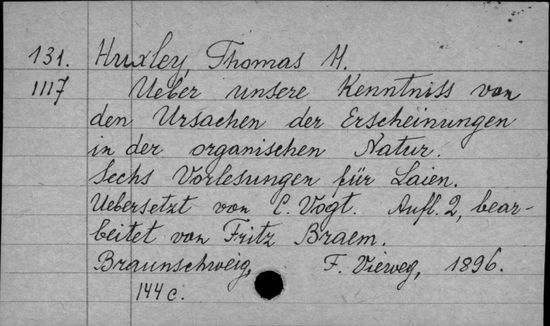 131. Huxley, Thomas H.
1117 Ueber unsere Kenntniss von
den Ursachen der Erscheinungen
in der organischen Natur.
Sechs Vorlesungen für Laien.
Uebersetzt von C. Vogt. Aufl. 2, bear-
beitet von Fritz Braem.
Braunschweig, F. Vieweg, 1896.
144 c.